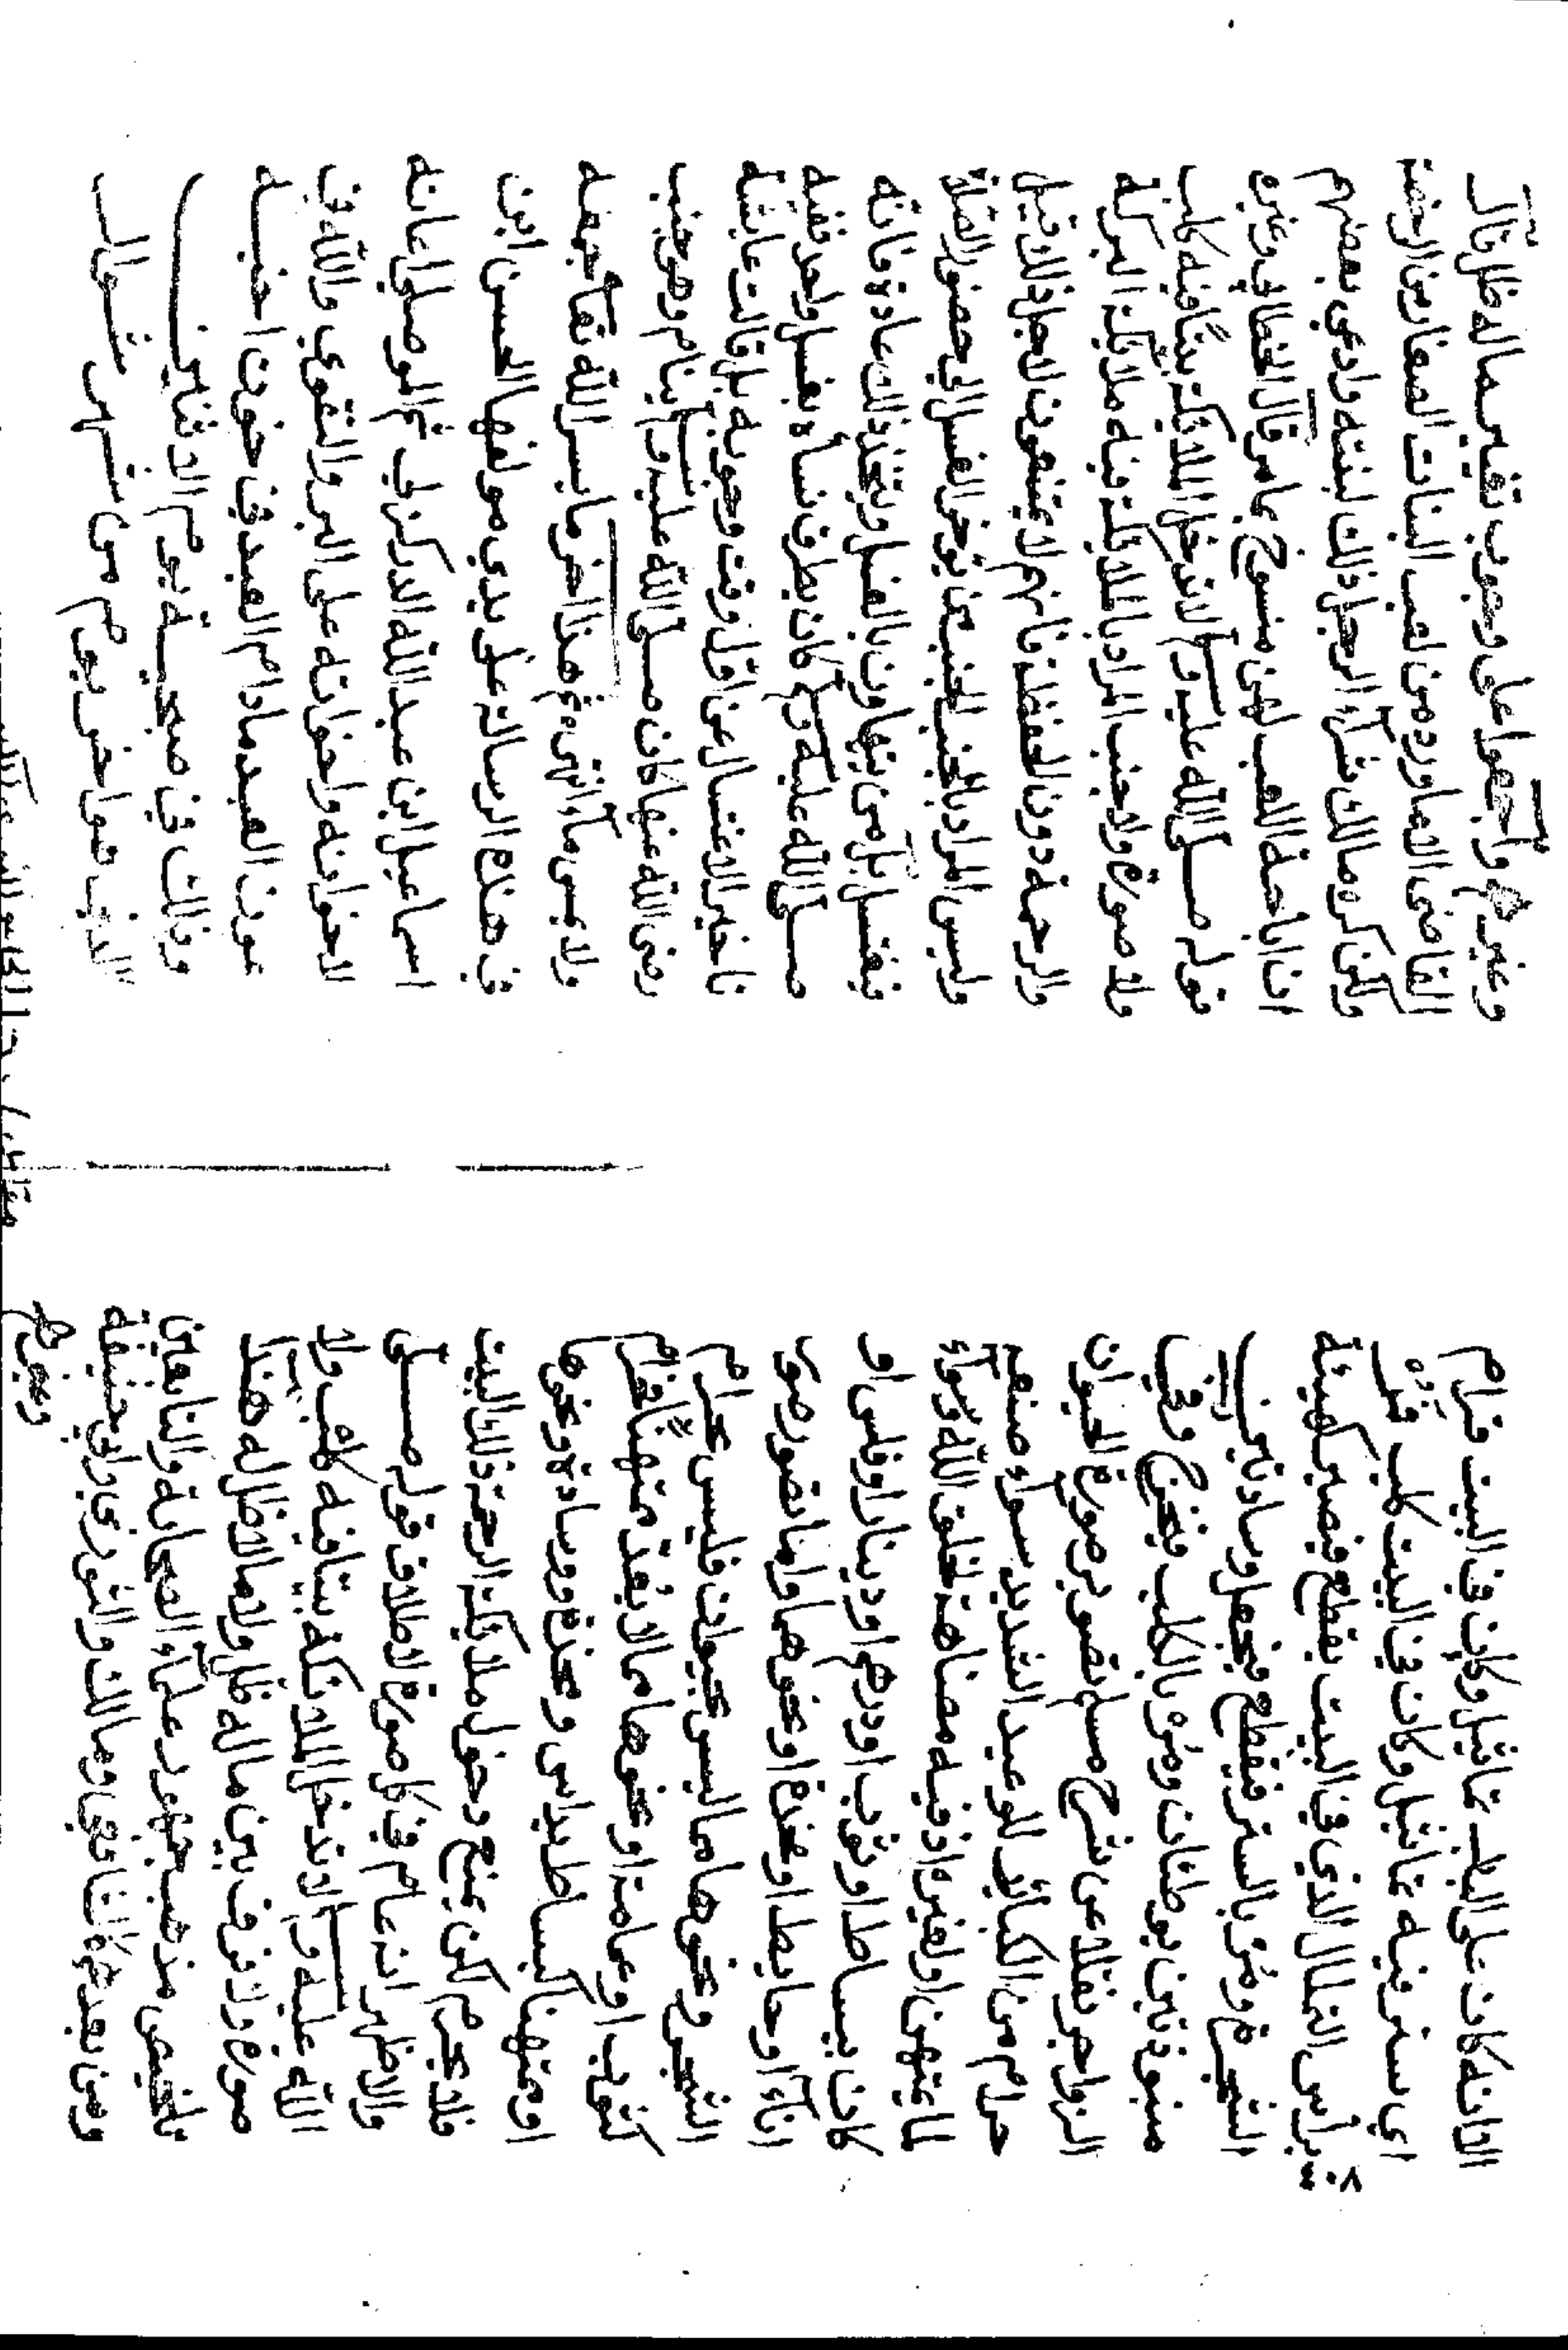 الا انه كان على الباب تماثيل وكان في البيت قرام
اي ستر فيه تماثيل وكان في البيت كلب فمره
براس التمثال الذي في البيت يقطع فيصير كهيئة
الشجرة ومر بالستر فيقطع فيجعل وسادتين
منبوذتين يوطئان ومر بالكلب فيخرج وفي
الزواجر نقلا عن شرح مسلم تصوير صورة الحيوان
حرام من الكبائر للوعيد الشديد سواء صنعه
لما يمتهن او لغيره اذ فيه مضاهاة لخلق الله وسواء
كان ببساط او ثوب او درهم او دينار او فلس او
اناء او حايط او مخدة او نحوها واما تصوير صور
الشجر ونحوها مما ليس بحيوان فليس بحرام
كثوب او عمامة او نحوها مما لا يعد ممتهنا فحرام
او ممتهنا كبساط يداس ومخدة ووسادة ونحوها
فلا يحرم لكن يمنع دخول ملائكة الرحمة ذلك البيت
والاظهر انه عام في كل صورة لاطلاق قوله صلى
الله عليه وسلم لا تدخل الملائكة بيتا فيه كلب ولا
صورة ولا فرق بين ماله ظل ولا ما لا ظل له هذا
تلخيص مذهب جمهور علماء الصحابة والتابعين
ومن بعدهم كالشافعي ومالك والثوري وابي حنيفة
وغيرهم
وغيرهم واجمعوا على وجوب تغيير ماله ظل قال
القاضي الا ما ورد من لعب البنات الصغار من الرخصة
ولكن كره مالك شراء الرجل ذلك لبنته وادعى بعضهم
ان اباحة اللعب لهن منسوخ بما مر قال الخطابي وغيره
قوله صلى الله عليه وسلم لا تدخل الملائكة بيتا فيه كلب
ولا صورة ولا جنب المراد بالملائكة فيه ملائكة البركة
والرحمة دون الحفظة فانهم لا يمتنعون لاجل ذلك قيل
وليس المراد بالجنب من يؤخر الغسل الى حضور الصلاة
فيغتسل بل من يتهاون بالغسل ويتخذ ذلك عادة فانه
صلى الله عليه وسلم كان يطوف نساه بغسل واحد ففيه
تاخير الاغتسال عن اول وقت وجوبه بل قالت عايشة
رضي الله عنها كان صلى الله عليه وسلم ينام وهو جنب
ولا يمس ماء انتهى هذا اخر ما يسر الله تعالى جمعه
في هذه الرسالة على يدي مولفها الحسن ابن
اسماعيل ابن عبد الله الدركزلي ثم الموصلي اعانه
لاخوانه واخواته على البر والتقوى والله في
عون العبد مادام العبد في عون اخيه
وذلك في صبحية يوم الاثنين
الذي هو اخر يوم من شهر شوال